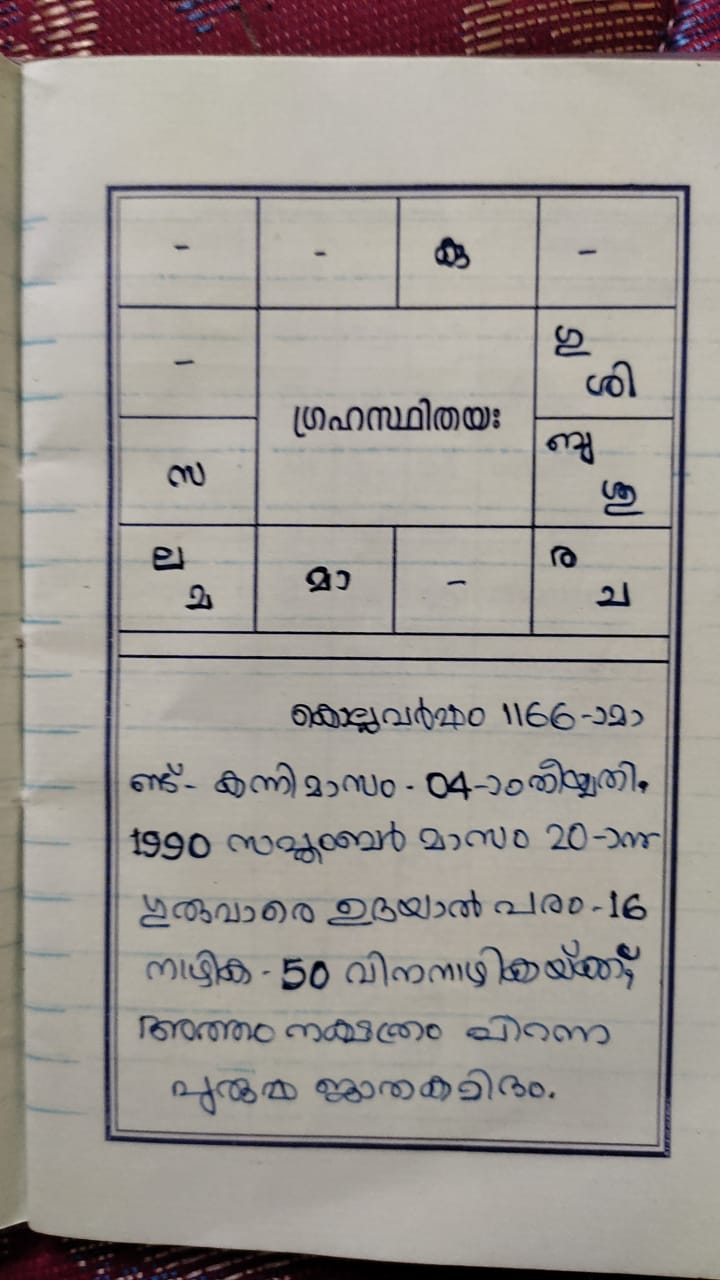 - - കു -
- ഗു ശി
ഗ്രഹസ്ഥിതയഃ
സ ബു ശു
ല മ മാ - ര ച
കൊല്ലവർഷം 1166-ാമാ
ണ്ട്- കന്നിമാസം - 04-ാംതിയ്യതി.
1990 സപ്തംബർ മാസം 20-ാനു
ഗുരുവാരെ ഉദയാൽ പരം-16
നാഴിക - 50 വിനനാഴികയ്ക്ക്;
അത്തം നക്ഷത്രം പിറന്നാ
പുരുഷ ജാതകമിദം.